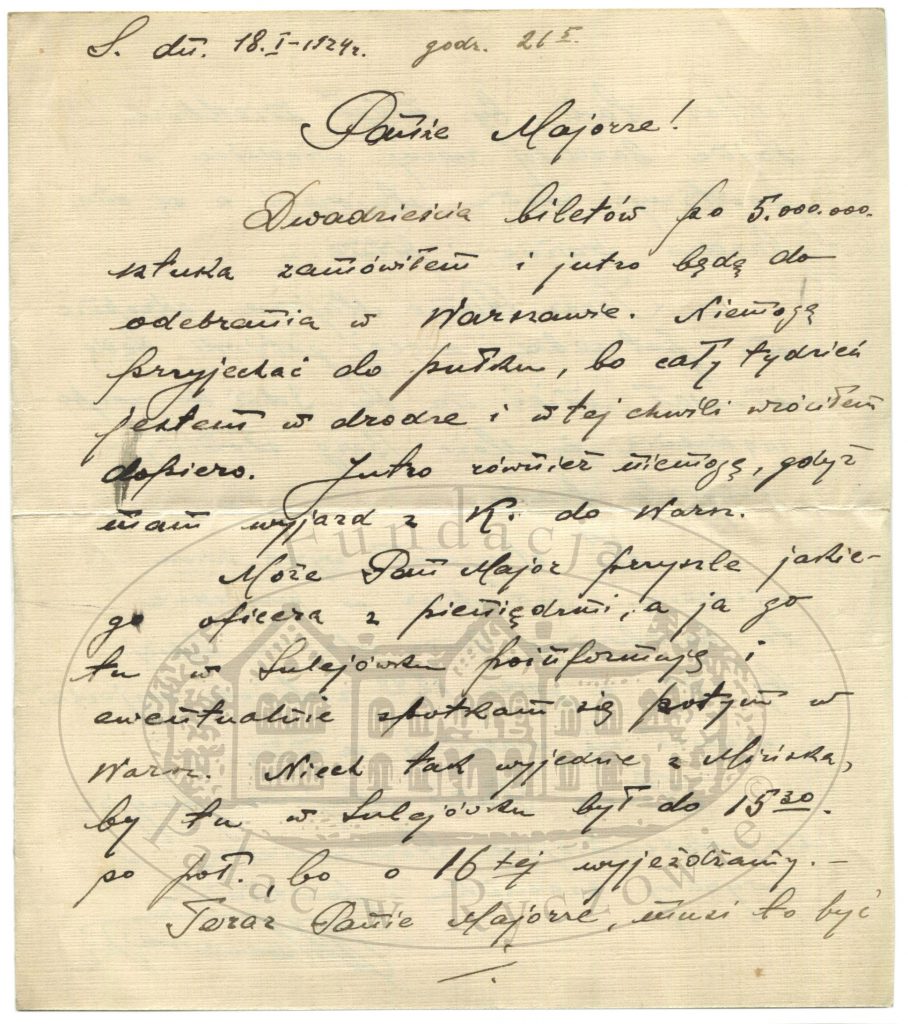 S. dn. 18.I-1924r. godz. 21 5.
Panie Majorze!
Dwadzieścia biletów po 5.000.000.
sztuka zamówiłem i jutro będą do
odebrania w Warszawie. Niemogę
przyjechać do pułku, bo cały tydzień
jestem w drodze i w tej chwili wróciłem
dopiero. Jutro również niemogę, gdyż
mam wyjazd z K. do Warsz.
Może Pan Major przyszle jakie-
go oficera z pieniędzmi, a ja go
tu w Sulejówku poinformuję i
ewentualnie spotkam się potym w
Warsz. Niech tak wyjedzie z Mińska,
by tu w Sulejówku był do 15 30.
po poł., bo o 16 tej wyjeżdżamy. –
Teraz Panie Majorze, musi to być
Fundacja
Pałac w Ryszowie